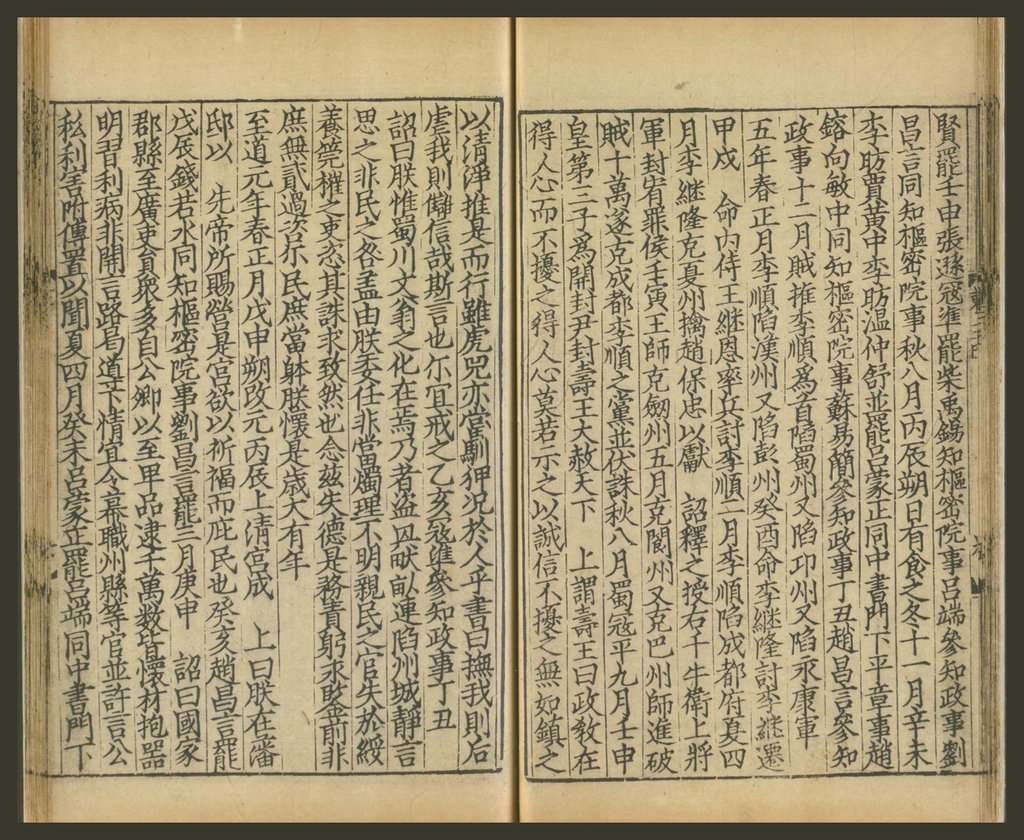 賢罷壬申張遜寇準罷柴禹錫知樞密院事呂端參知政事劉
昌言同知樞密院事秋八月丙辰朔日有食之冬十一月辛未
李昉賈黃中李昉溫仲舒並罷呂蒙正同中書門下平章事趙
鎔向敏中同知樞密院事蘇易簡參知政事丁丑趙昌言參知
政事十二月賊推李順為首陷蜀州又陷邛州又陷永康軍
五年春正月李順陷漢州又陷彭州癸酉命李繼隆討李繼遷
甲戌　命內侍王繼恩率兵討李順二月李順陷成都府夏四
月李繼隆克夏州擒趙保忠以獻　詔釋之授右千牛衛上將
軍封宥罪侯壬寅王師克劔州五月克閬州又克巴州師進破
賊十萬遂克成都李順之黨並伏誅秋八月蜀寇平九月壬申
皇第三子爲開封尹封壽王大赦天下　上謂壽王曰政教在
得人心而不擾之得人心莫若示之以誠信不擾之無如鎮之
以清淨推是而行雖虎兕亦當馴狎況於人乎書曰撫我則后
虐我則讎信哉斯言也尓宜戒之乙亥寇準參知政事丁丑
詔曰朕惟蜀川文翁之化在焉乃者盜興畎畝連陷州城靜言
思之非民之咎盖由朕委任非當燭理不明親民之官失於綏
養筦榷之吏恣其誅求致然也念茲失德是務責躬永鑒前非
庶無貳過咨尓民庶當躰朕懷是歲大有年
至道元年春正月戊申朔改元丙辰上清宮成　上曰朕在藩
邸以　先帝所賜營是宮欲以祈福而庇民也癸亥趙昌言罷
戊辰錢若水同知樞密院事劉昌言罷三月庚申　詔曰國家
郡縣至廣吏員衆多自公卿以至卑品逮千萬數皆懷材抱器
明習利病非開言路曷導下情宜令幕職州縣等官並許言公
私利害附傳置以聞夏四月癸未呂蒙正罷呂端同中書門下